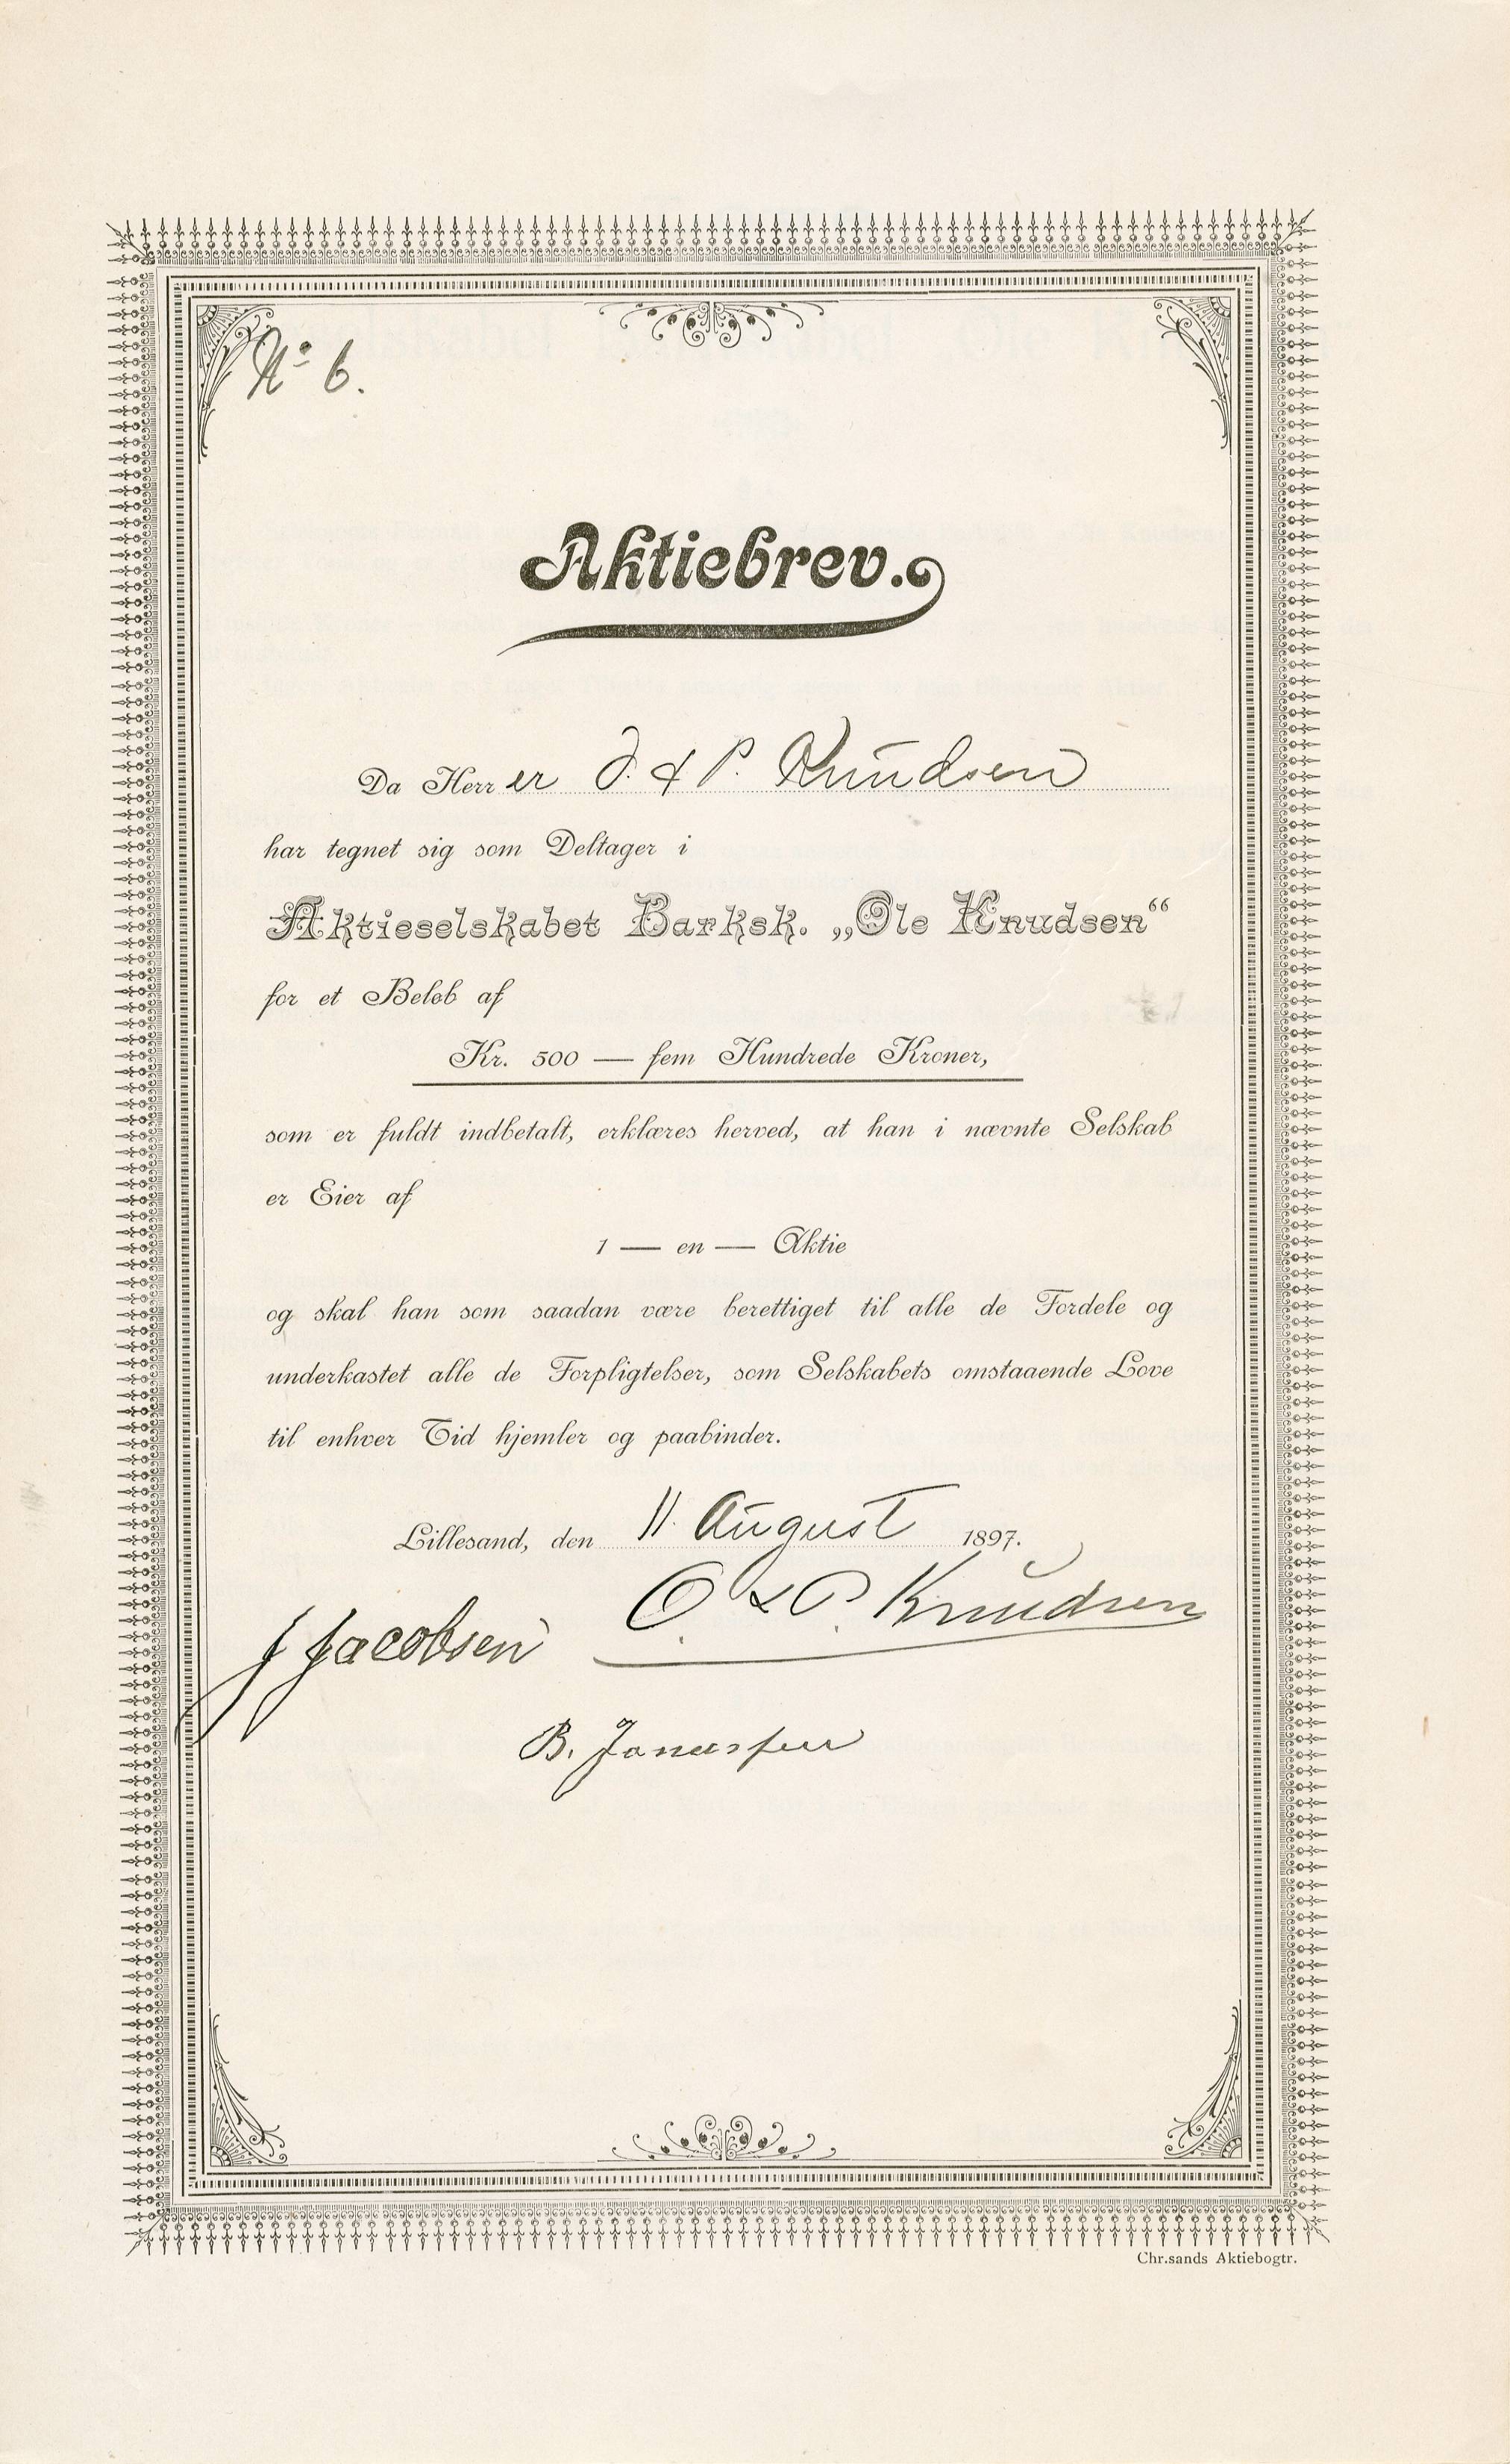 No 6.
Aktiebrev.
Da Herrer O. & P. Knudsen
har tegnet sig som Deltager i
Aktieselskabet Barksk. „Ole Knudsen“
for et Beløb af
Kr. 500 — fem Hundrede Kroner,
som er fuldt indbetalt, erklæres herved, at han i nævnte Selskab
er Eier af
1 — en — Aktie
og skal han som saadan være berettiget til alle de Fordele og
underkastet alle de Forpligtelser, som Selskabets omstaaende Love
til enhver Tid hjemler og paabinder.
Lillesand, den 11. August 1897.
O. & P. Knudsen
J Jacobsen
B. Jonassen
Chr.sands Aktiebogtr.